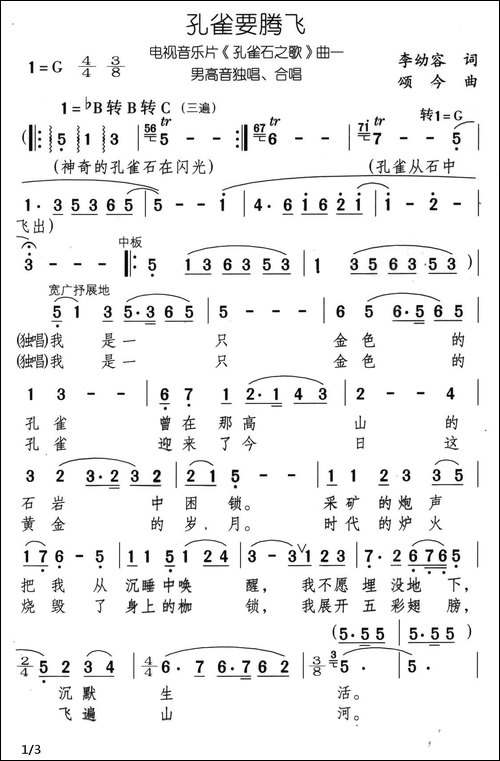 孔雀要腾飞
电视音乐片《孔雀石之歌》曲一
男高音独唱、合唱
1=G 4/4 3/8
李幼容 词
颂今 曲
1=♭B转B转C (三遍)
转1=G
(‖: 5 1 3 | 56 tr 5· :‖: 67 tr 6· | 7i tr 7· - 5
(神奇的孔雀石在闪光) (孔雀从石中
1· 3 5 3 6 5 | 5 - - | 4· 6 1 6 2 1 | 1 - 2 -
飞出)
3 - - 中板 ‖: 5 1 3 6 3 5 3 | 1· 3 5 6 3 5 3 )
宽广抒展地
5 1 3 5·6 3 2 | 1 - - - | 6 5 6·5 6 5
(独唱)我 是一 只 金色 的
(独唱)我 是一 只 金色 的
1 3 - - | 6 7 1 2 1 2 3 | 2 - - 4
孔雀 曾在那高 山的
孔雀 迎来了今 日这
3 2 3·2 3 2 | 2 1 5· - | 3 5 2 3 5
石岩 中困锁。 采矿的炮声
黄金 的岁月。 时代的炉火
1 7 6 - 5 | 1 2 1 5 2 | 3 - 3 ∨ 1 2 3 | 7· 2 6 7 6 5
把我 从沉睡中唤 醒，我不愿埋没地下，
烧毁 了身上的枷 锁，我展开五彩翅膀，
(5·5 5 | 5·5 5)
2/4 5 2 3 4 | 4/4 6· 7 6·7 6 7 | 3/8 5· | 5·
沉默生 活。
飞遍山 河。
1/3